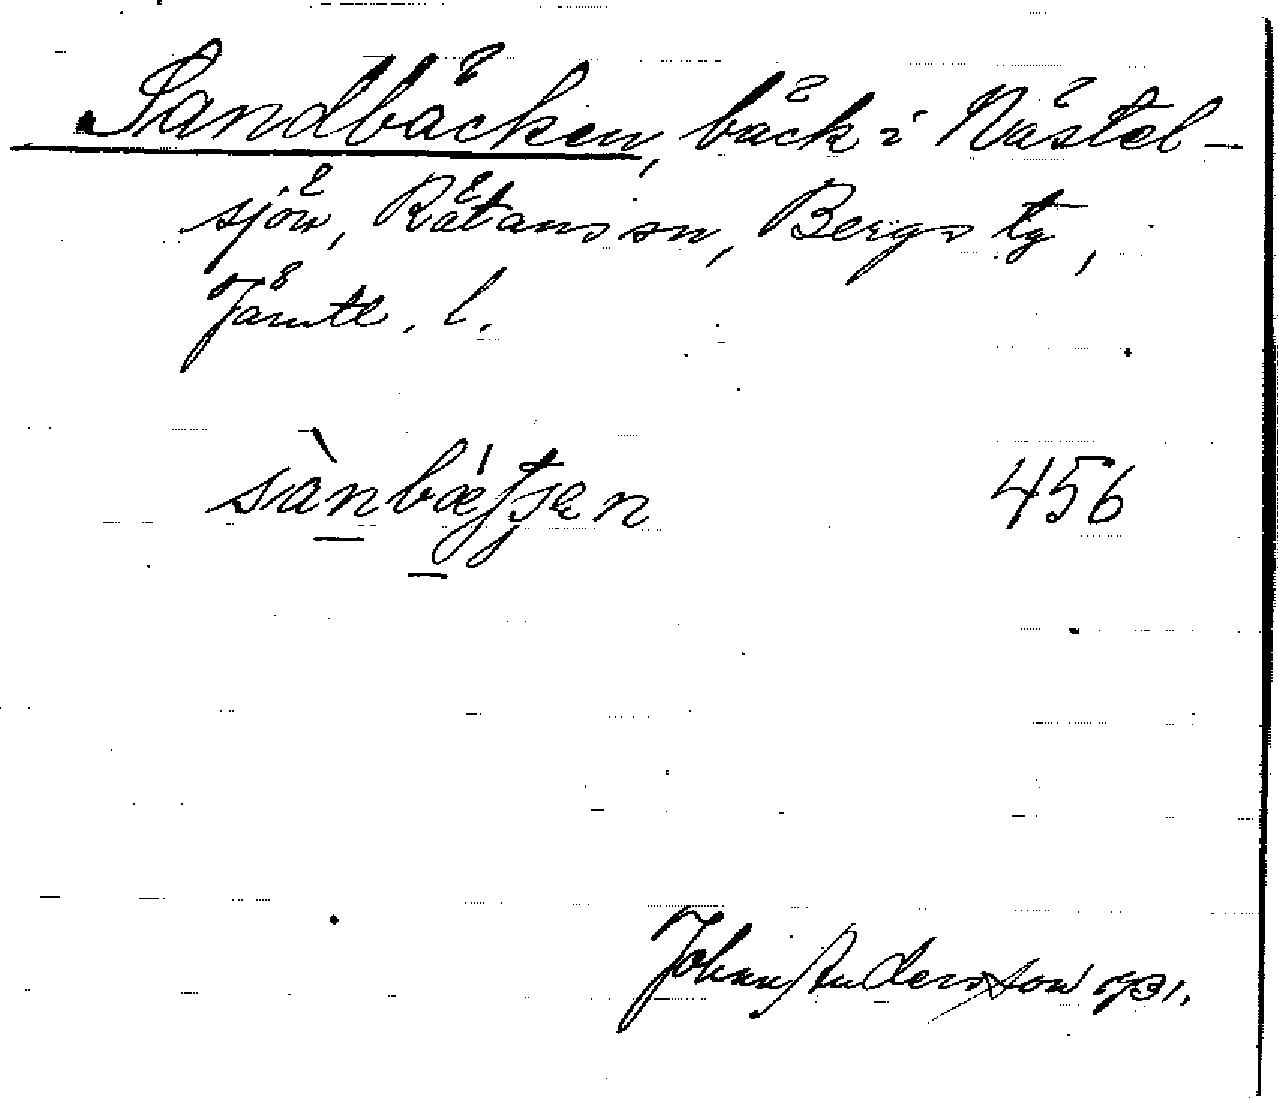 Sandbäcken, bäck i Nästel-
sjön, Rätans sn, Bergs tg,
Jämtl. l.
sànbǽtȷen 456
John Andersson 1931.